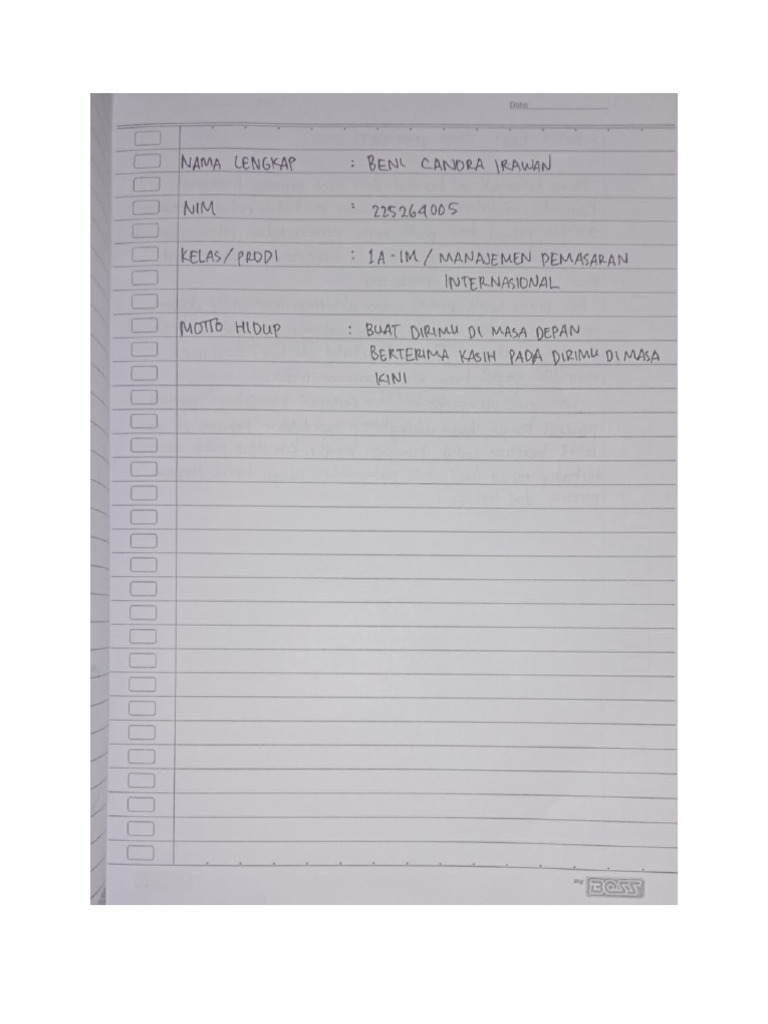 Date:
NAMA LENGKAP : BENI CANDRA IRAWAN
NIM : 225264005
KELAS/PRODI : 1A-IM / MANAJEMEN PEMASARAN
INTERNASIONAL
MOTTO HIDUP : BUAT DIRIMU DI MASA DEPAN
BERTERIMA KASIH PADA DIRIMU DI MASA
KINI
My BOSS